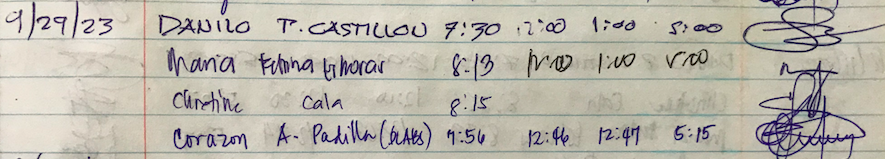 9/29/23 DANILO T. CASTILLON 7:30 12:00 1:00 5:00
Maria 8:13 12:00 1:00 5:00
Christine Cala 8:15
Corazon A. Padilla 7:56 12:46 12:47 5:15